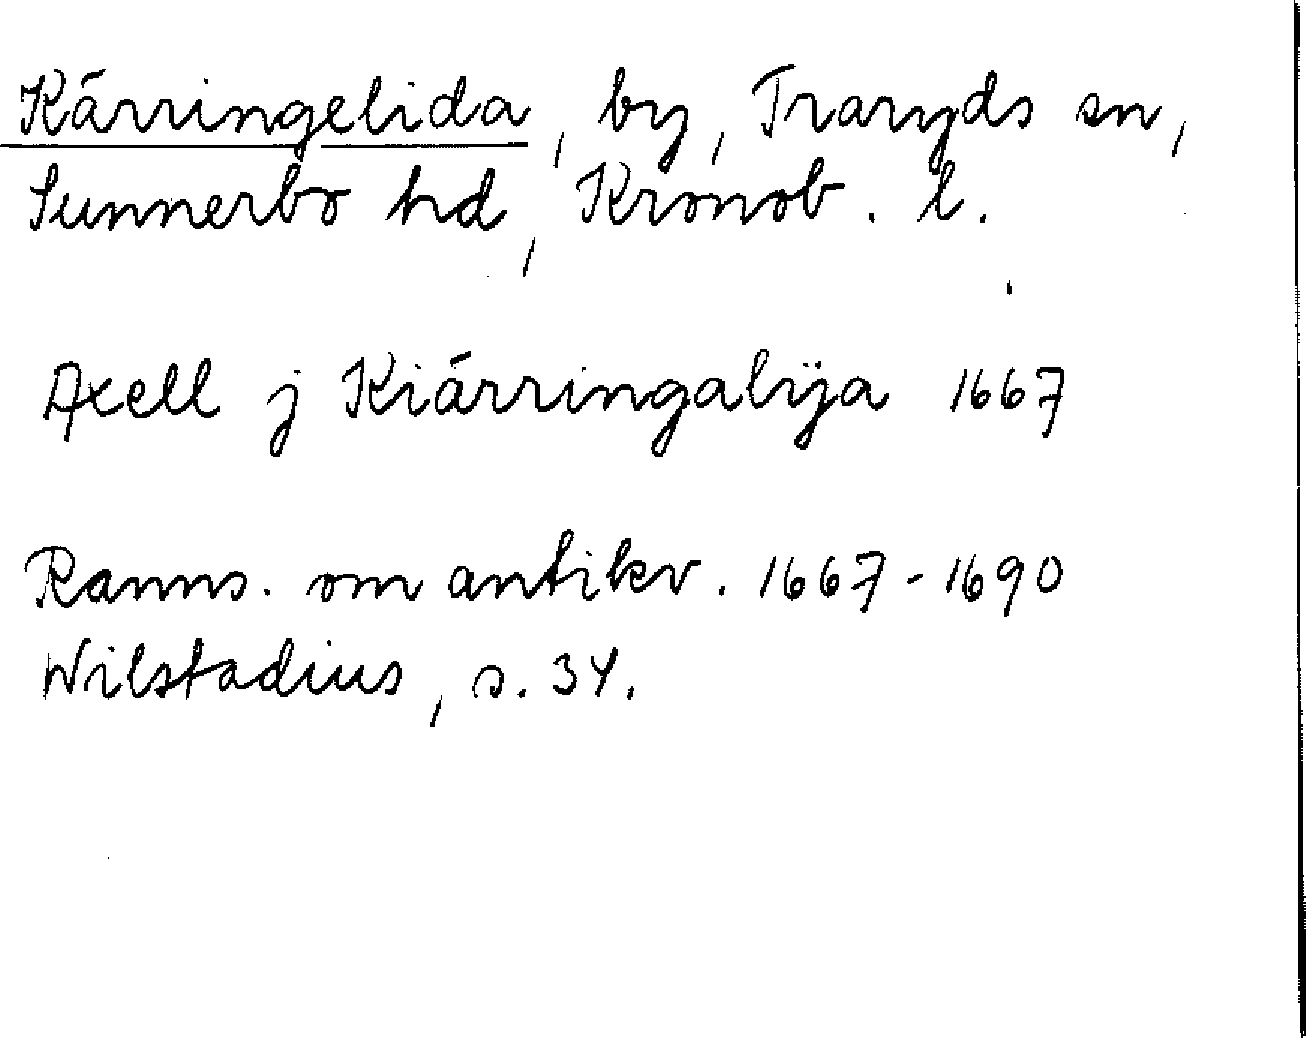 Kärringelida, by, Traryds sn,
Sunnerbo hd, Kronob. l.
Axell j Kiärringalÿa 1667
Ranns. om antikv. 1667-1690
Wilstadius, s. 34.